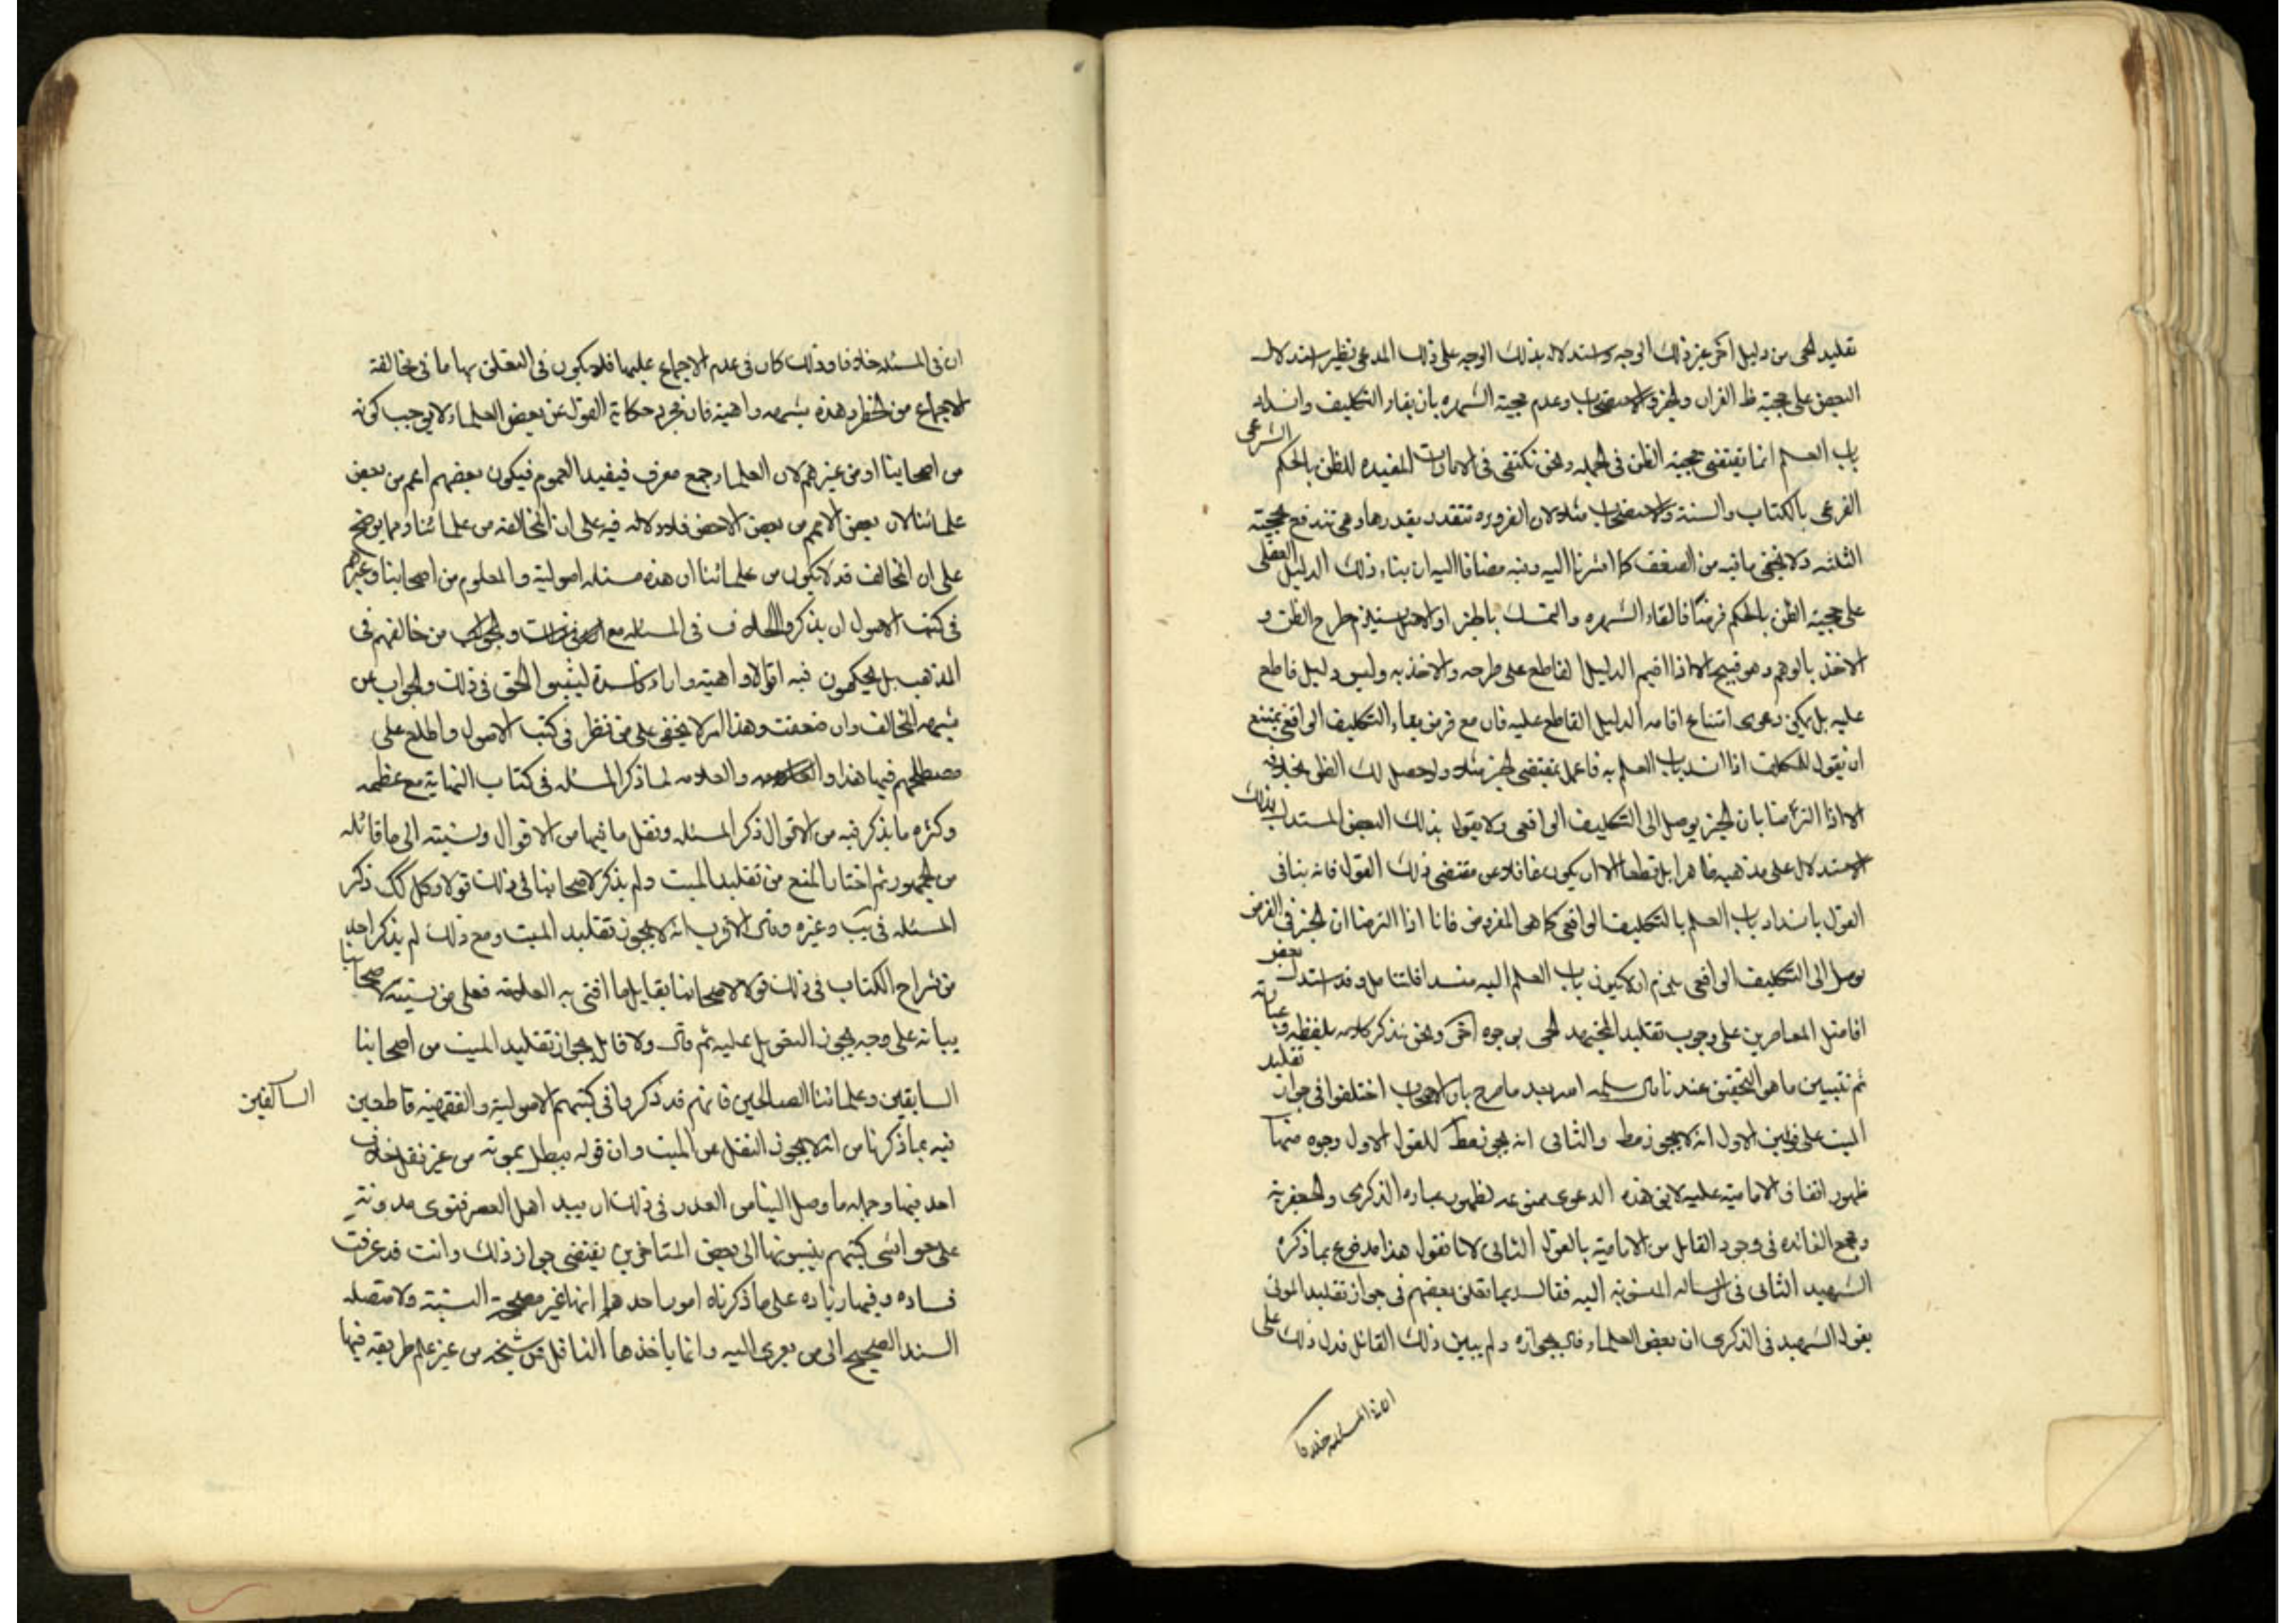 تقليد الحى من دليل اخر غير ذلك الوجه واستدلاله بذلك الوجه على ذلك المدعى نظير استدلال
البعض على حجية ظ القران والخبر والاستصحاب وعدم حجية الشهره بان بقاء التكليف وانسداد
باب العلم انما يقتضى حجية الظن فى الجمله ونحن نكتفى فى الامارات المفيده للظن بالحكم الشرعى
الفرعى بالكتاب والسنة والاستصحاب مثلا لان الضروره تتقدر بقدرها وهى تندفع بحجية
الثلثه ولا يخفى ما فيه من الضعف كما اشرنا اليه وفيه مضافا اليه ان بناء ذلك الدليل العقلى
على حجية الظن بالحكم فرضنا فالقاء الشهره والتمسك بالخبر او الاصل يستلزم طرح الظن و
الاخذ بالوهم وهو قبيح الا اذا اقيم الدليل القاطع على طرحه والاخذ به وليس دليل قاطع
عليه بل يمكن دعوى امتناع اقامه الدليل القاطع عليه فان مع فرض بقاء التكليف الواقعى يمتنع
ان يقول للمكلف اذا انسد باب العلم به فاعمل بمقتضى الخبر مثلا ولو حصل لك الظن بخلافه
الا اذا التزمنا بان الخبر يوصل الى التكليف الواقعى ولا يقول بذلك البعض المستدل بذلك
الاستدلال على مذهبه ظاهرا بل قطعا الا ان يكون غافلا عن مقتضى ذلك القول فانه ينافى
القول بانسداد باب العلم بالتكليف الواقعى كما هى المفروض فانا اذا التزمنا ان الخبر فى الفرض
يوصل الى التكليف الواقعى يلزم ان لا يكون باب العلم اليه منسدا فلتتامل وقد استدل بعض
افاضل المعاصرين على وجوب تقليد المجتهد الحى بوجوه اخر ونحن نذكر كلامه بلفظه وعبارته
ثم نتبيين ما هو التحقيق عندنا قال سلمه الله بعد ما صرح بان الاصحاب اختلفوا فى جواز تقليد
الميت على قولين الاول انه لا يجوز مط والثانى انه يجوز مط للقول الاول وجوه منها
ظهور اتفاق الامامية عليه لا يق هذه الدعوى ممنوعه لظهور عباره الذكرى والجعفرية
ومجمع الفائده فى وجود القايل من الامامية بالقول الثانى لانا نقول هذا مدفوع بما ذكره
الشهيد الثانى فى الرساله المنسوبة اليه فقال ربما تعلق بعضهم فى جواز تقليد الموتى
بقول الشهيد فى الذكرى ان بعض العلماء قال بجوازه ولم يبين ذلك القائل فدل ذلك على
ان فى المسئله خلافا
ان فى المسئله خلافا وذلك كان فى عدم الاجماع عليها فلا يكون فى التعلق بها ما فى مخالفة
الاجماع من الخطر وهذه شبهه واهية فان مجرد حكاية القول عن بعض العلماء لا يوجب كونه
من اصحابنا او من غيرهم لان العلماء جمع معرف فيفيد العموم فيكون بعضهم اعم من بعض
علمائنا لان بعض الاعم من بعض الاخص فلا دلاله فيه على ان المخالفه من علمائنا ومما يوضح
على ان المخالف قد لا يكون من علمائنا ان هذه مسئله اصولية والمعلوم من اصحابنا وغيرهم
فى كتب الاصول ان يذكروا الخلاف فى المسئله مع من خالفهم فى
المذهب بل يحكون فيه اقوالا واهية واراء فاسدة ليثبتوا الحق فى ذلك والجواب عن
شبهه المخالف وان ضعفت وهذا امر لا يخفى على من نظر فى كتب الاصول واطلع على
مصطلحهم فيها هذا والعلامه لما ذكر المسئله فى كتاب النهاية مع عظمه
وكثره ما يذكر فيه من الاقوال ذكر المسئله ونقل ما فيها من الاقوال ونسبته الى ما قائله
من الجمهور ثم اختار المنع من تقليد الميت ولم يذكر لاصحابنا فى ذلك قولا وكل كك ذكر
المسئله فى يب وغيره وقال الاقرب انه لا يجوز تقليد الميت ومع ذلك لم يذكر احد
من شراح الكتاب فى ذلك قولا لاصحابنا يقابل ما افتى به العلامه فعلى من نسبته لاصحابنا
بيانه على وجه يجوز التعويل عليه ثم قال ولا قايل بجواز تقليد الميت من اصحابنا
السابقين وعلمائنا الصالحين فانهم قد ذكروا فى كتبهم الاصولية والفقهيه قاطعين
السالفين
فيه بما ذكرنا من انه لا يجوز النقل عن الميت وان قوله يبطل بموته من غير نقل خلاف
احد فيها وجمله ما وصل الينا من العذر فى ذلك ان بيد اهل العصر فتوى مدونة
على حواشى كتبهم ينسبونها الى بعض المتاخرين يقتضى جواز ذلك وانت قد عرفت
فساده وفيها زياده على ما ذكرناه امور احدها انها غير مصححة النسبة ولا متصله
السند الصحيح الى من يعزى اليه وانما ياخذها الناقل من شيخه من غير علم طريقه فيها